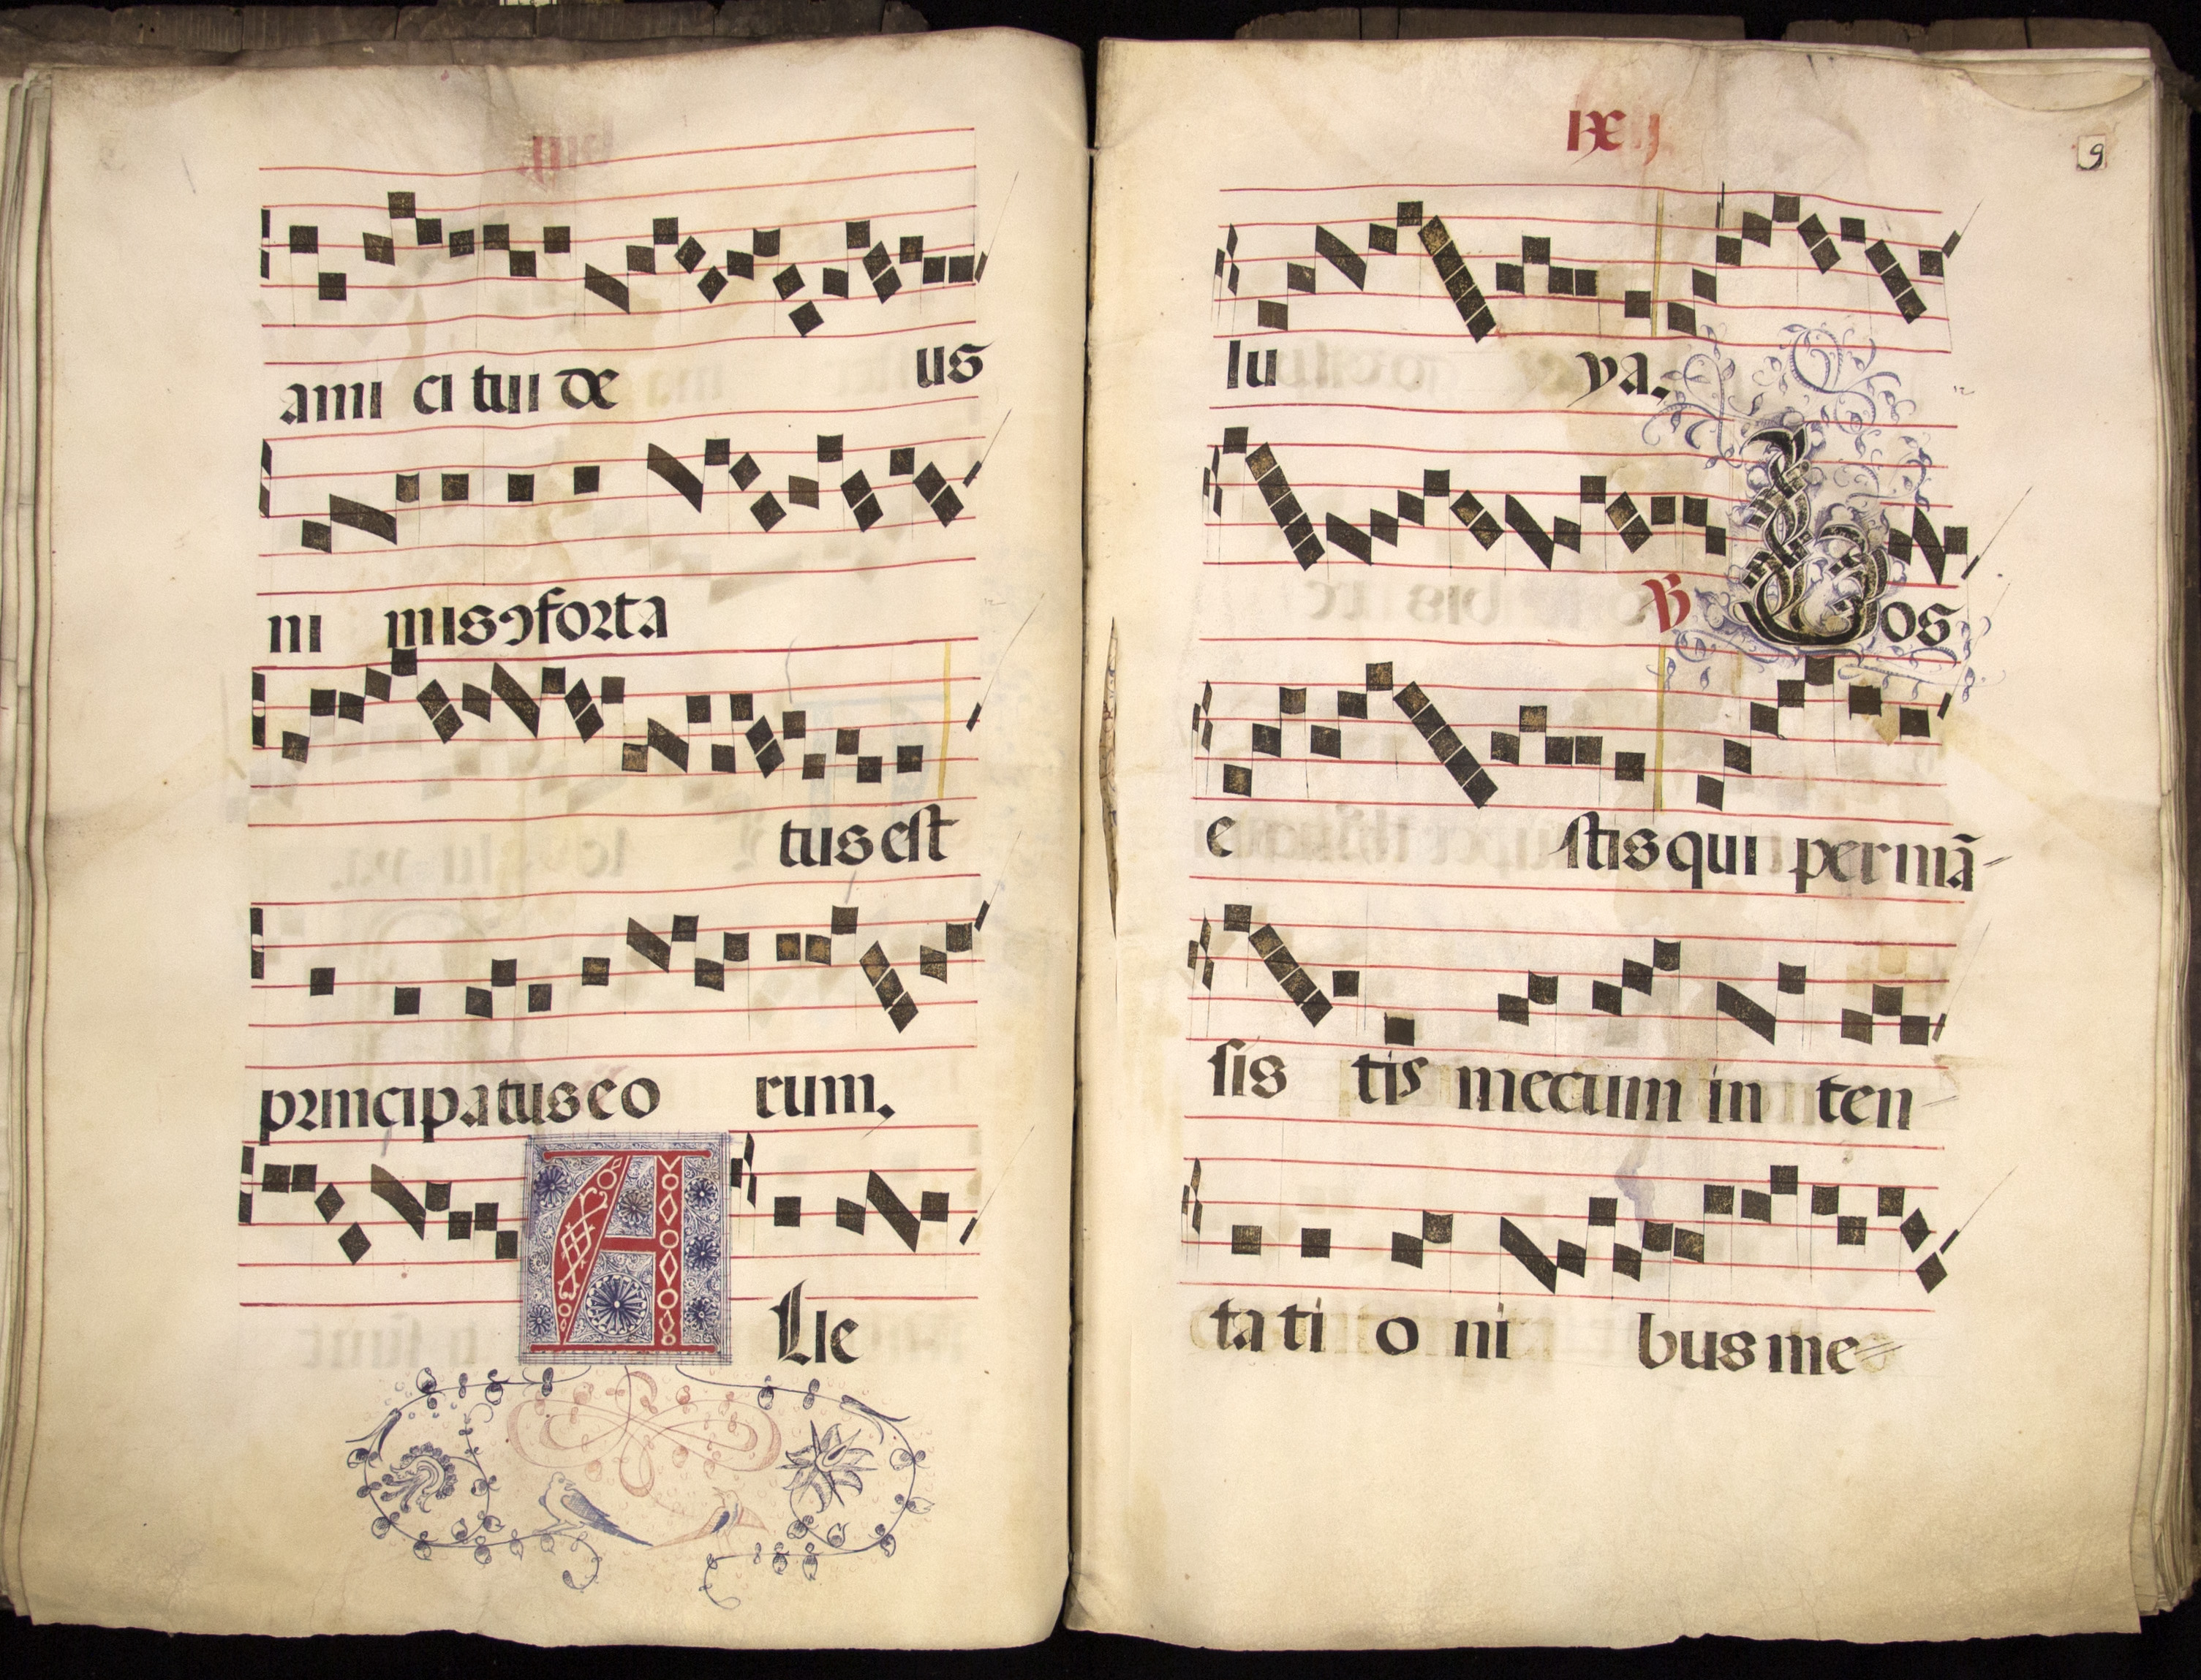 ami ci tui de us
ni misↄforta
tus est
principatus eo rum.
A Lle
ix
9
lu ya.
℣ Vos
e stis qui per mã-
sis tis mecum in ten
ta ti o ni bus me=